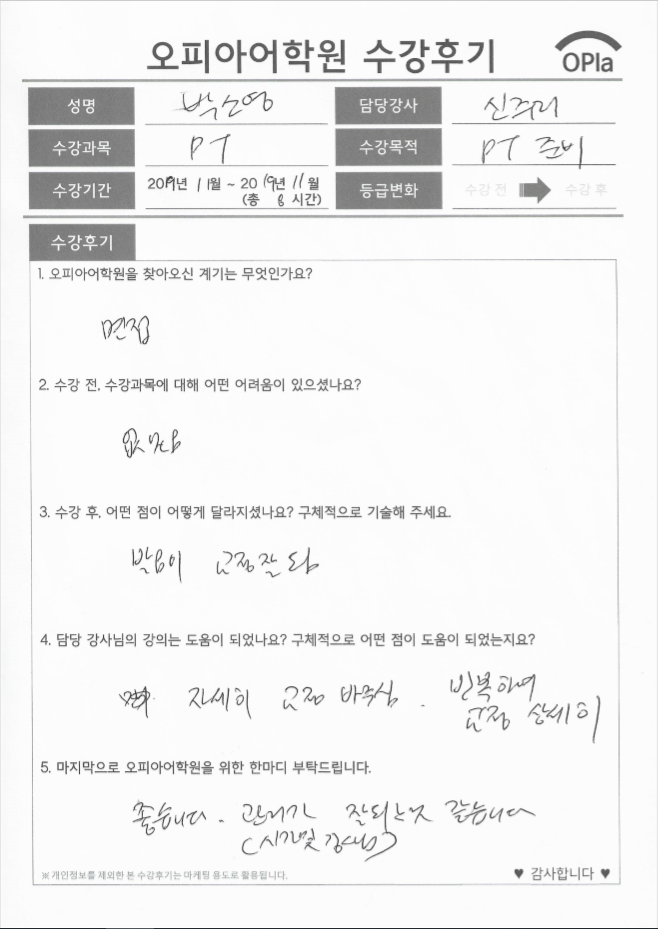 오피아어학원 수강후기
OPIa
성명 박소영 담당강사 신주리
수강과목 PT 수강목적 PT 준비
수강기간 2019년 11월 ~ 2019년 11월 등급변화 수강 전 수강 후
(총 8 시간)
수강후기
1. 오피아어학원을 찾아오신 계기는 무엇인가요?
면접
2. 수강 전, 수강과목에 대해 어떤 어려움이 있으셨나요?
없었음
3. 수강 후, 어떤 점이 어떻게 달라지셨나요? 구체적으로 기술해 주세요.
발음이 교정 잘 됨
4. 담당 강사님의 강의는 도움이 되었나요? 구체적으로 어떤 점이 도움이 되었는지요?
자세히 교정 봐주심. 반복하여
교정 상세히
5. 마지막으로 오피아어학원을 위한 한마디 부탁드립니다.
좋습니다. 관리가 잘되는것 같습니다
(시간및 강사님)
※ 개인정보를 제외한 본 수강후기는 마케팅 용도로 활용됩니다.
♥ 감사합니다 ♥